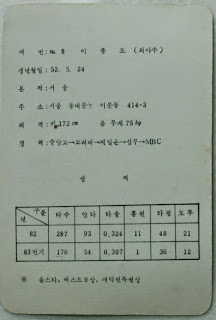 백 번: No 5 이 종 도 (외야수)
생년월일: 52. 5. 24
본 적: 서 울
주 소: 서울 동대문구 이문동 414-3
체 격: 키 172cm 몸 무게 75kg
경 력: 중앙고→고려대→제일은→성무→MBC
성 적
년 구분 타수 안타 타율 홈런 타점 도루
82 287 93 0.324 11 48 21
83전기 176 54 0.307 1 36 12
※ 올스타, 베스트등상, 개막전특별상